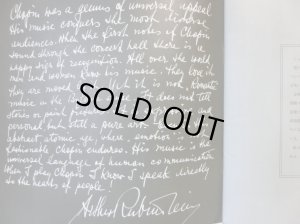 Chopin was a genius of universal appeal.
His music conquers the most diverse
audiences. When the first notes of Chopin
sound through the concert hall there is a
happy sigh of recognition. All over the world
men and women know his music. They love it
They are moved by it. Yet it is not Romantic
music in the
stories or paint pictures. It is expressive and
personal but still a pure art. Even in this
abstract atomic age, where emotion is not
fashionable Chopin endures. His music is the
universal language of human communication
When I play Chopin I know I speak directly
to the hearts of people!
Arthur Rubinstein
SOLD OUT